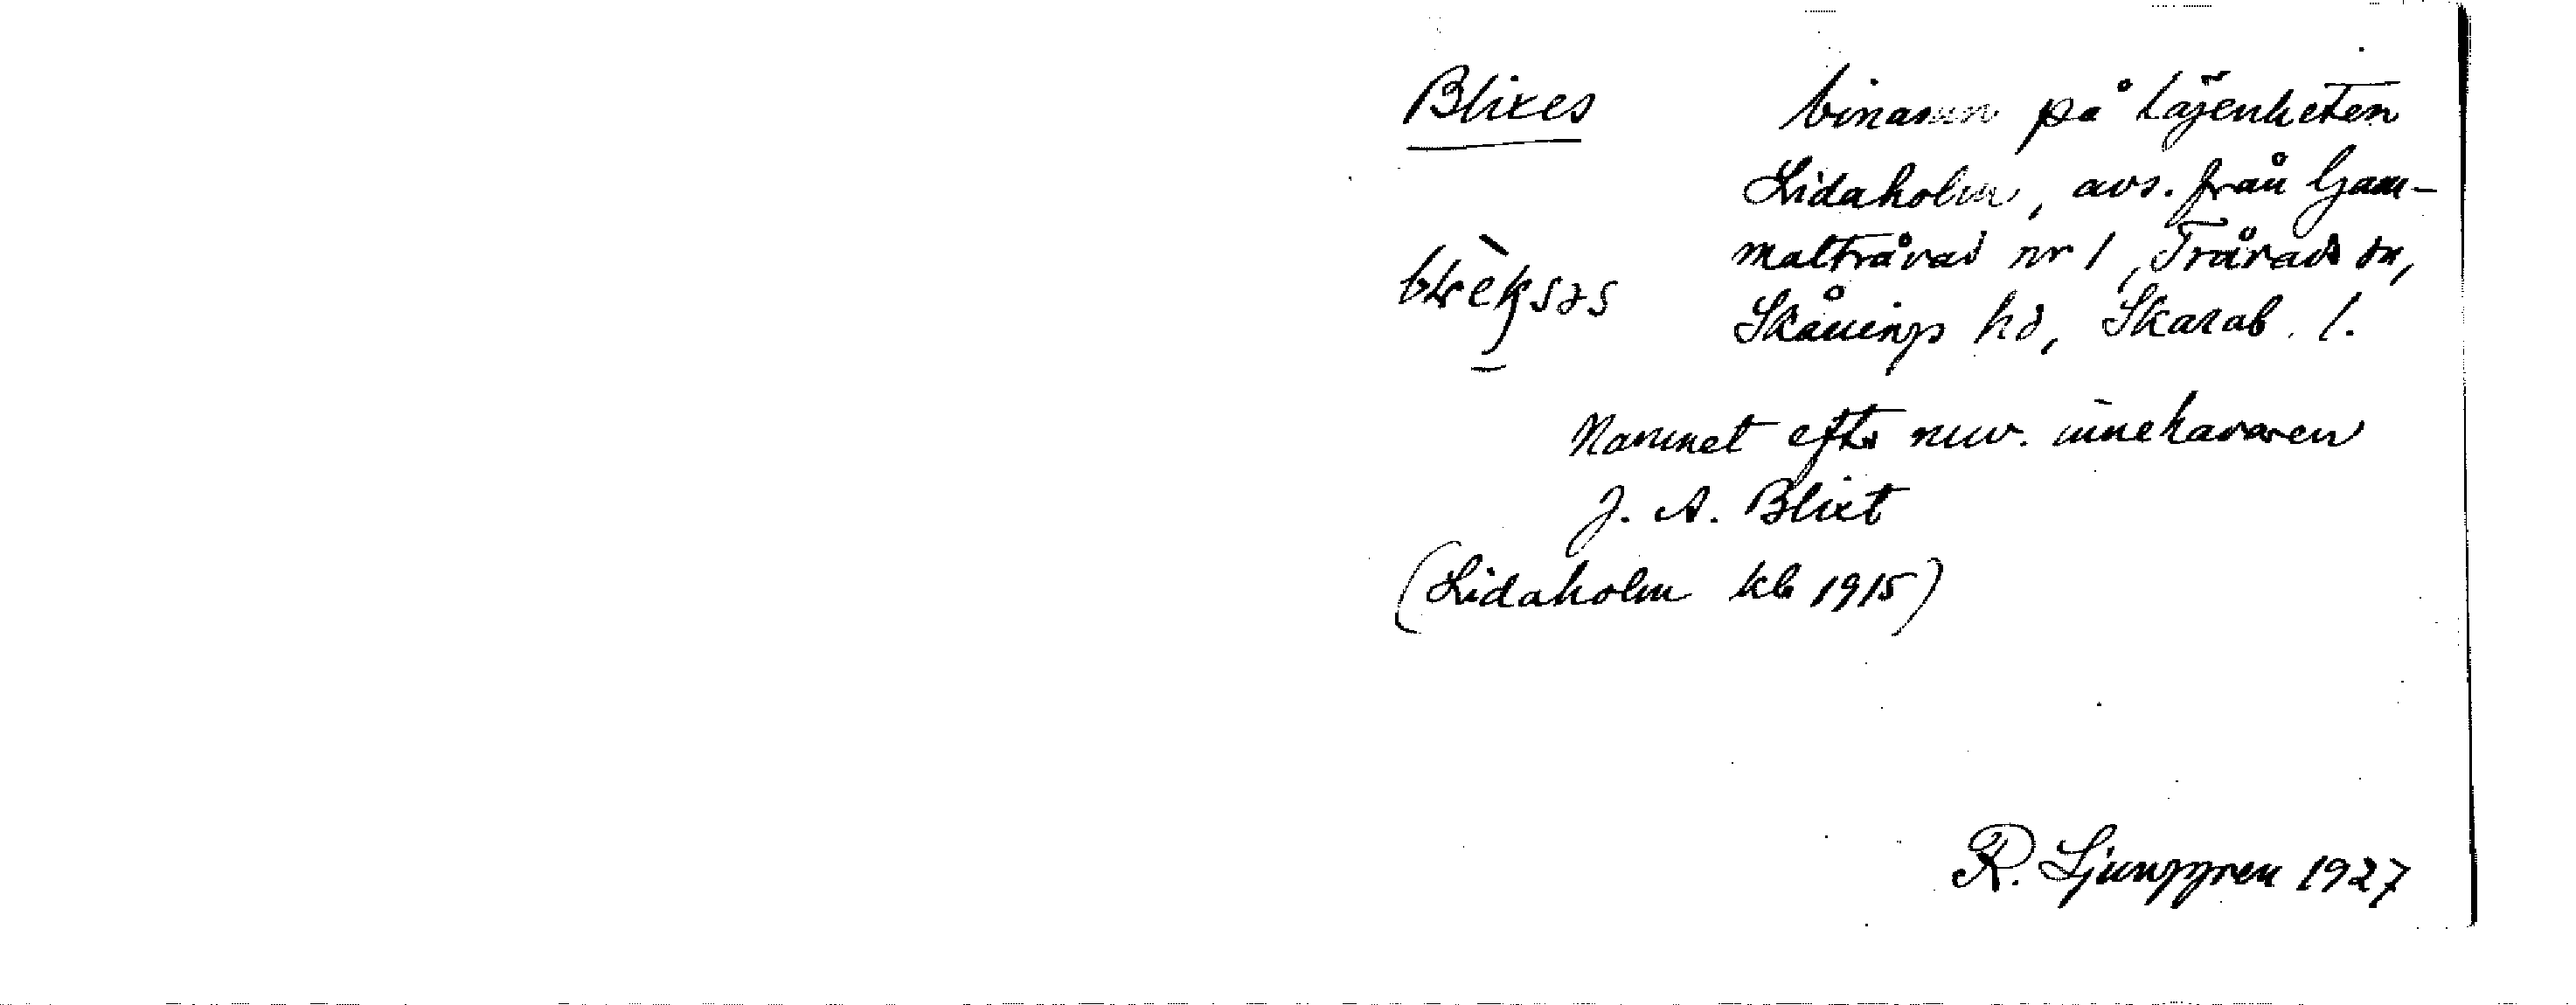 Blixes binamn på lägenheten
Lidaholm, avs. från Gam-
maltråvad nr 1, Tråvads sn,
Skånings hd, Skarab. l.
Namnet efter nuv. innehavaren
J. A. Blixt
(Lidaholm kb 1915)
R. Ljunggren 1927